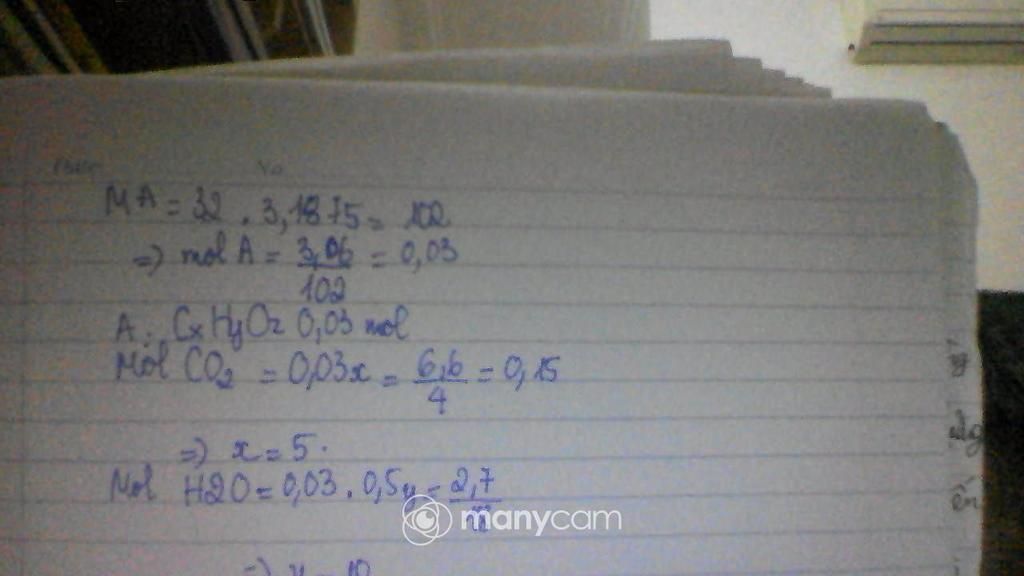 MA = 32 . 3,1875 = 102
=) mol A = 3,06 / 102 = 0,03
A : CxHyOz 0,03 mol
Mol CO2 = 0,03x = 6,6 / 4 = 0,15
=) x = 5.
Mol H2O = 0,03 . 0,5y = 2,7
manycam
=) y = 10